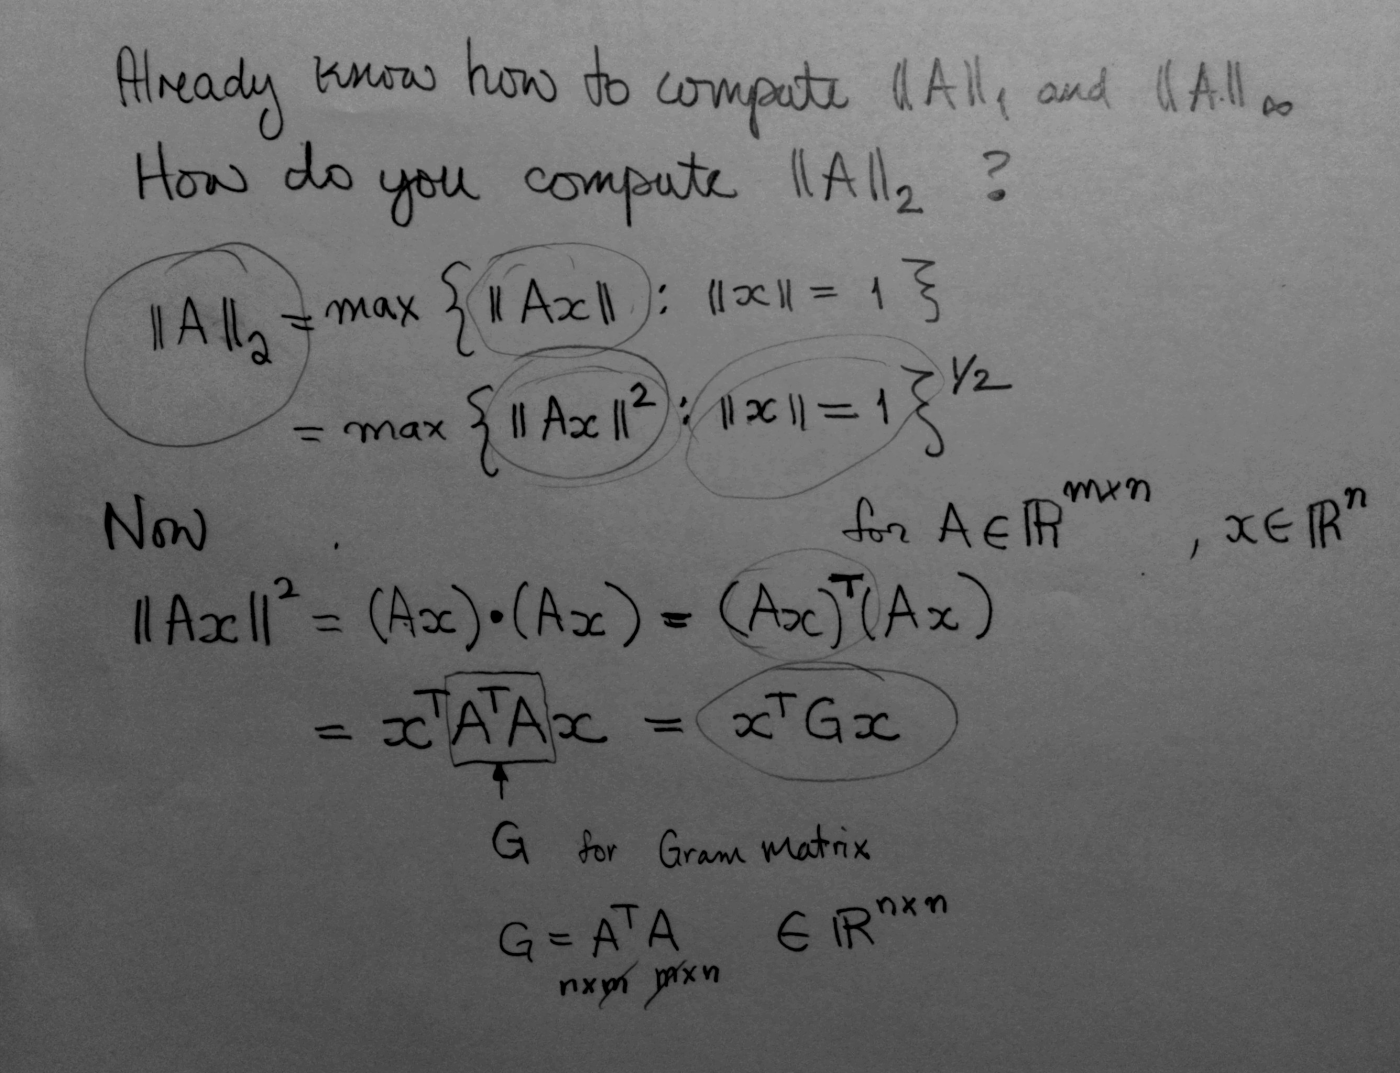 Already know how to compute ‖A‖₁ and ‖A‖∞
How do you compute ‖A‖₂ ?
‖A‖₂ = max { ‖Ax‖ : ‖x‖ = 1 }
= max { ‖Ax‖² : ‖x‖ = 1 }^1/2
Now for A ∈ ℝ^m×n , x ∈ ℝ^n
‖Ax‖² = (Ax)•(Ax) = (Ax)ᵀ(Ax)
= xᵀAᵀAx = xᵀGx
↑
G for Gram matrix
G = AᵀA ∈ ℝ^n×n
n×m m×n